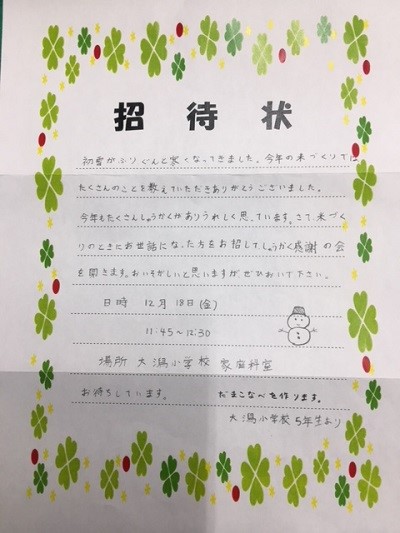 招待状
初雪がふりぐんと寒くなってきました。今年の米づくりでは
たくさんのことを教えていただきありがとうございました。
今年もたくさんしゅうかくがありうれしく思っています。さて、米づく
りのときにお世話になった方をお招きして、しゅうかく感謝の会
を開きます。おいそがしいと思いますがぜひおいで下さい。
日時 12月18日(金)
11:45~12:30
場所 大潟小学校 家庭科室
お待ちしています。 だまこなべを作ります。
大潟小学校5年生より